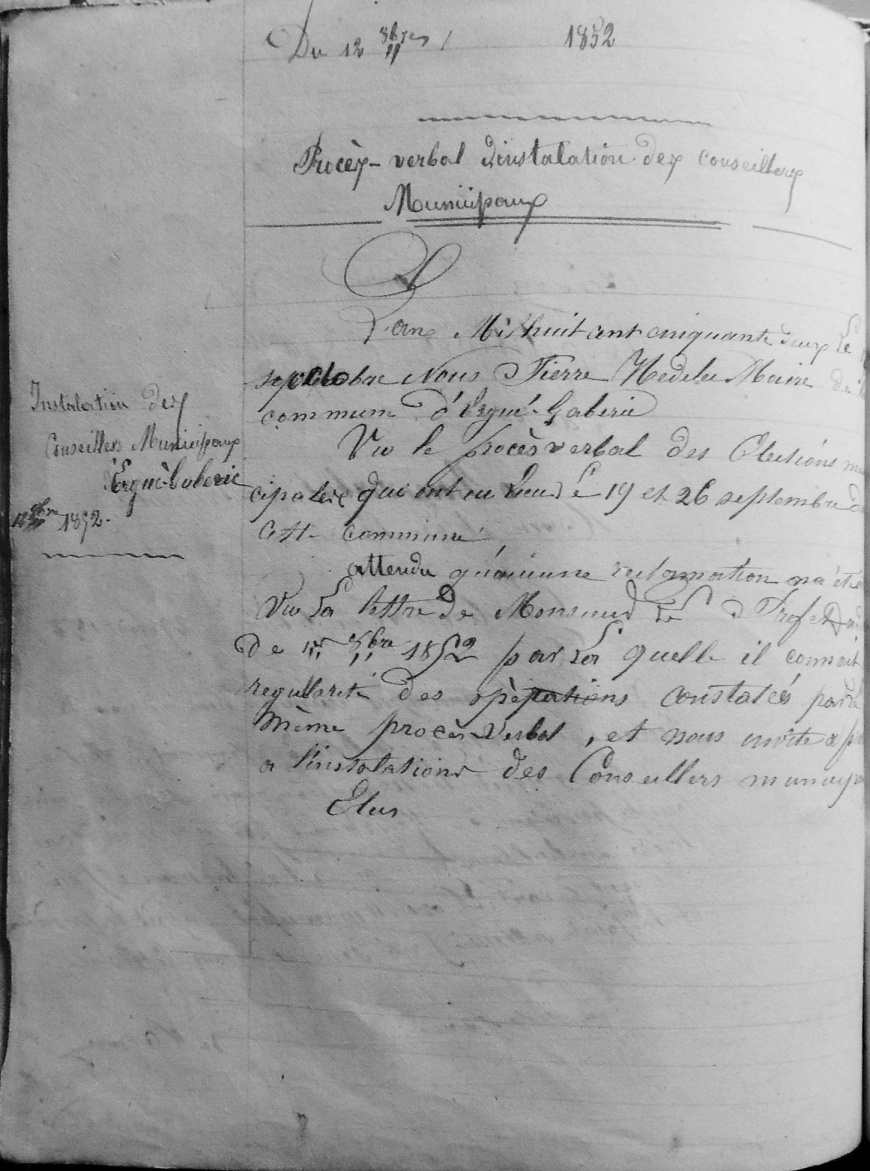 Du 12 8bres 1852
Procès-verbal d'instalation des conseillers
Municipaux
L'an Mil huit cent cinquante deux Le
octobre Nous Pierre Nédelec Maire de
commune d'Ergué-Gaberic
Instalation des
Conseillers Municipaux
d'Ergué-Gaberic
12 8bre 1852.
Vu le procès verbal des Elections mu
cipales qui ont eu lieu Le 19 et 26 septembre d
cette commune
attendu qu'aucune reclamation n'a été
Vu La lettre De Monsieur Le Prefet
De 8bre 1852 par La quelle il connait
regularité des opèrations constatés par le
même procès-verbal, et nous invite a p
a l'instalations des Conseillers municip
Elus